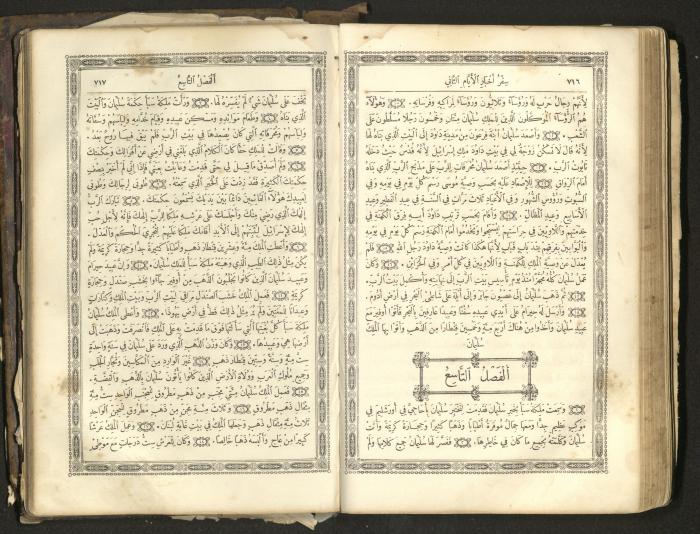 ٧١٦ سفر أخبار الأيام الثاني
لأنهم رجال حرب له ورؤساء وثلاثيون ورؤساء لمراكبه وفرسانه. وهؤلاء
هم الرؤساء الموكلون الذين للملك سليمان مئتان وخمسون رجلا مسلطون على
الشعب. وأصعد سليمان ابنة فرعون من مدينة داود إلى البيت الذي بناه لها
لأنه قال لا تسكن زوجة لي في بيت داود ملك إسرائيل لأنه قدس حيث دخله
تابوت الرب. حينئذ أصعد سليمان محرقات للرب على مذبح الرب الذي بناه
أمام الرواق. للإصعاد عليه بحسب وصية موسى رسم كل يوم في يومه وفي
السبوت ورؤوس الشهور وفي الأعياد ثلاث مرات في السنة في عيد الفطير وعيد
الأسابيع وعيد المظال. وأقام بحسب ترتيب داود أبيه فرق الكهنة في
خدمتهم واللاويين في حراستهم ليسبحوا ويخدموا أمام الكهنة رسم كل يوم في يومه
والبوابين بفرقهم عند باب فباب لأنها هكذا كانت وصية داود رجل الله. فلم
يعدل عن وصية الملك للكهنة واللاويين في كل أمر وفي الخزائن. وكان
عمل سليمان كله مجهزا منذ يوم تأسيس بيت الرب إلى نهايته وأكمل بيت الرب.
ثم ذهب سليمان إلى عصيون جابر وإلى أيلة على شاطئ البحر في أرض أدوم.
وأرسل له حيرام على أيدي عبيده سفنا وعبيدا عارفين بالبحر فأتوا أوفير مع
عبيد سليمان وأخذوا من هناك أربع مئة وخمسين قنطارا من الذهب وأتوا بها الملك
سليمان.
الفصل التاسع
وسمعت ملكة سبا بخبر سليمان فقدمت لتختبر سليمان بأحاجي في أورشليم في
موكب عظيم جدا ومعها جمال موقرة أطيابا وذهبا كثيرا وحجارة كريمة وأتت
سليمان وكلمته بجميع ما كان في خاطرها. ففسر لها سليمان جميع كلامها ولم
الفصل التاسع ٧١٧
يخف على سليمان شيء لم يفسره لها. ورأت ملكة سبا حكمة سليمان والبيت
الذي بناه وطعام موائده ومسكن عبيده وقيام خدامه ولباسهم وسقاته
ولباسهم ومحرقاته التي كان يصعدها في بيت الرب فلم يبق فيها روح بعد.
وقالت للملك حقا كان الكلام الذي بلغني في أرضي عن أقوالك وحكمتك
ولم أصدق ما قيل لي حتى قدمت وعاينت بعيني فإذا إني لم أخبر بنصف
حكمتك الكثيرة فقد زدت على الخبر الذي سمعته. طوبى لرجالك وطوبى
لعبيدك هؤلاء القائمين دائما بين يديك يسمعون حكمتك. تبارك الرب
إلهك الذي رضي بك وأجلسك على عرشه ملكا للرب إلهك لأنه لأجل حب
إلهك لإسرائيل ليثبتهم إلى الأبد أقامك ملكا عليهم لتجري الحكم والعدل.
وأعطت الملك مئة وعشرين قنطار ذهب وأطيابا كثيرة جدا وحجارة كريمة ولم
يكن مثل ذلك الطيب الذي وهبته ملكة سبا للملك سليمان. وإن عبيد حيرام
وعبيد سليمان الذين كانوا يجلبون الذهب من أوفير جاؤوا بخشب صندل وحجارة
كريمة. فعمل الملك خشب الصندل مراقي لبيت الرب وبيت الملك وكنارات
وعيدانا للمغنين ولم ير مثل ذلك قط في أرض يهوذا. وأعطى الملك سليمان
ملكة سبا كل بغيتها التي سألتها فوق ما قدمت به على الملك فانصرفت وذهبت إلى
أرضها هي وعبيدها. وكان وزن الذهب الذي ورد على سليمان في سنة واحدة
ست مئة وستة وستين قنطار ذهب. غير الوارد من المكاسين وتجار الجلب
وجميع ملوك العرب وولاة الأرض الذين كانوا يأتون سليمان بالذهب والفضة.
فعمل الملك سليمان مئتي مجنب من ذهب مطروق للمجنب الواحد ست مئة
مثقال ذهب مطروق. وثلاث مئة مجن من ذهب مطروق للمجن الواحد
ثلاث مئة مثقال ذهب وجعلها الملك في بيت غابة لبنان. وعمل الملك عرشا
كبيرا من عاج وألبسه ذهبا خالصا. وكان للعرش ست درجات مع موطئ